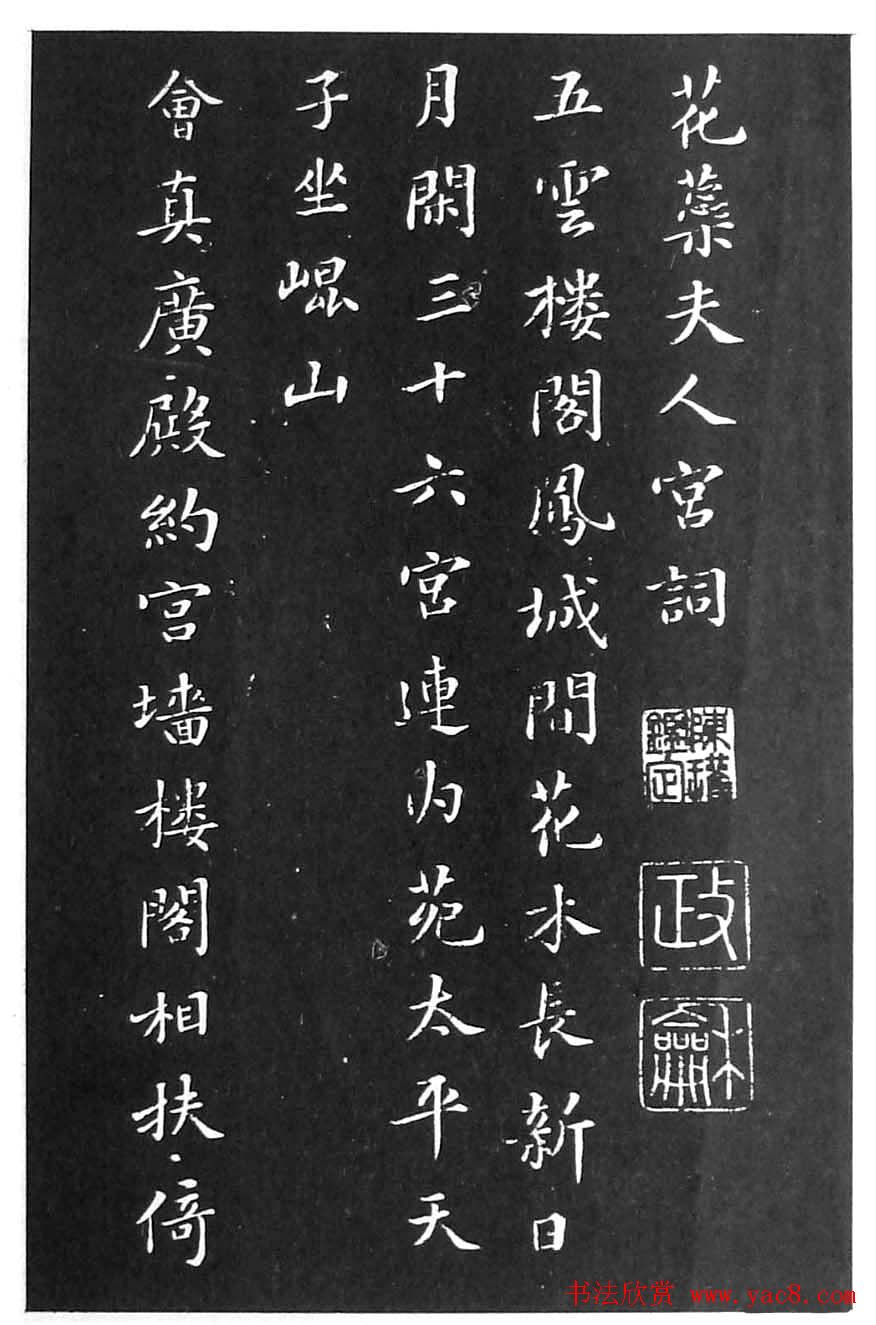 花蘂夫人宮詞
陳𤩽鑑定
政
龢
五雲樓閣鳳城間花木長新日
月閑三十六宮連内苑太平天
子坐崐山
會真廣殿約宮墻樓閣相扶倚
书法欣赏 www.yac8.com